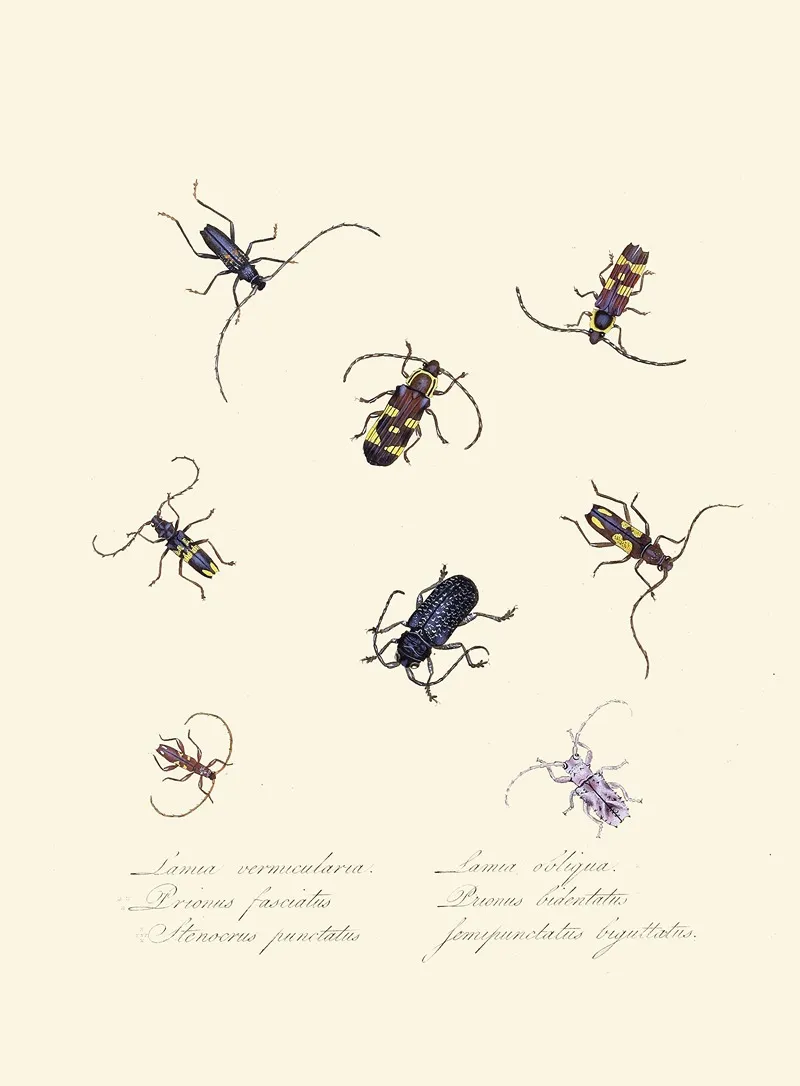 Lamia vermicularia.
Prionus fasciatus
Stenocrus punctatus
Lamia obliqua.
Prionus bidentatus
semipunctatus biguttatus.